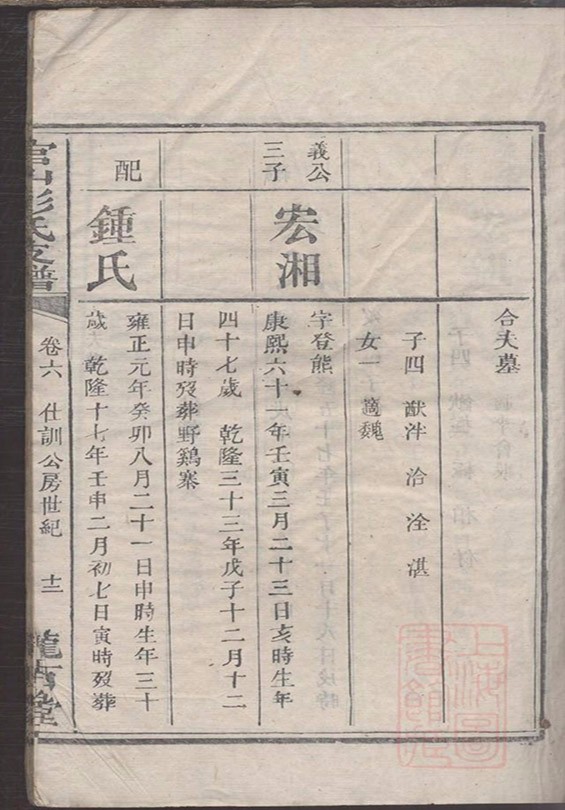 合夫墓
子四 猷泮 洽 洤 湛
女一 適魏
義公
三子
宏湘
字登熊
康熙六十一年壬寅三月二十三日亥時生年
四十七歲 乾隆三十三年戊子十二月十二
日申時歿葬野鷄寨
配
鍾氏
雍正元年癸卯八月二十一日申時生年三十
歲 乾隆十七年壬申二月初七日寅時歿葬
官山彭氏支譜
卷六 仕訓公房世紀 十三
上海圖書館藏